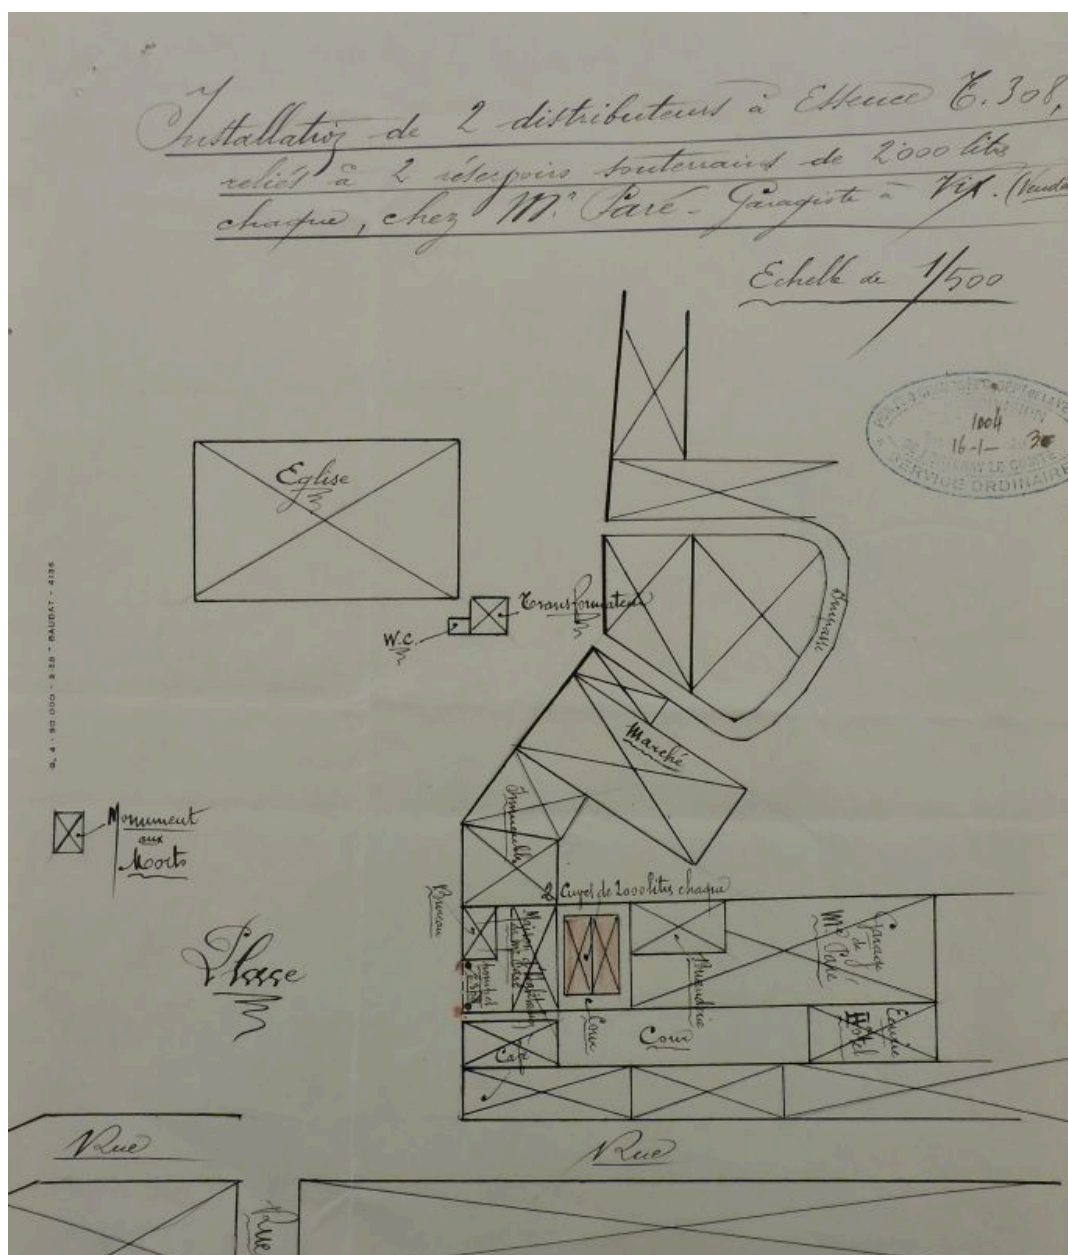 Installation de 2 distributeurs à Essence T.308,
reliés à 2 réservoirs souterrains de 2000 litres
chaque, chez Mr Paré - Garagiste à Vix. (Vendé
Echelle de 1/500
1004
16-1-
SERVICE ORDINAIRE
Eglise
Transformateur
W.C.
Impasse
Marché
Monument
aux
Morts
Immeuble
2 Cuves de 2000 litres chaque
Bureau
Maison d'Habitation
de Mr Paré
Buanderie
Garage
de
Mr Paré
Place
Cour
Cour
Ecurie
Hôtel
Café
Rue
Rue
Rue